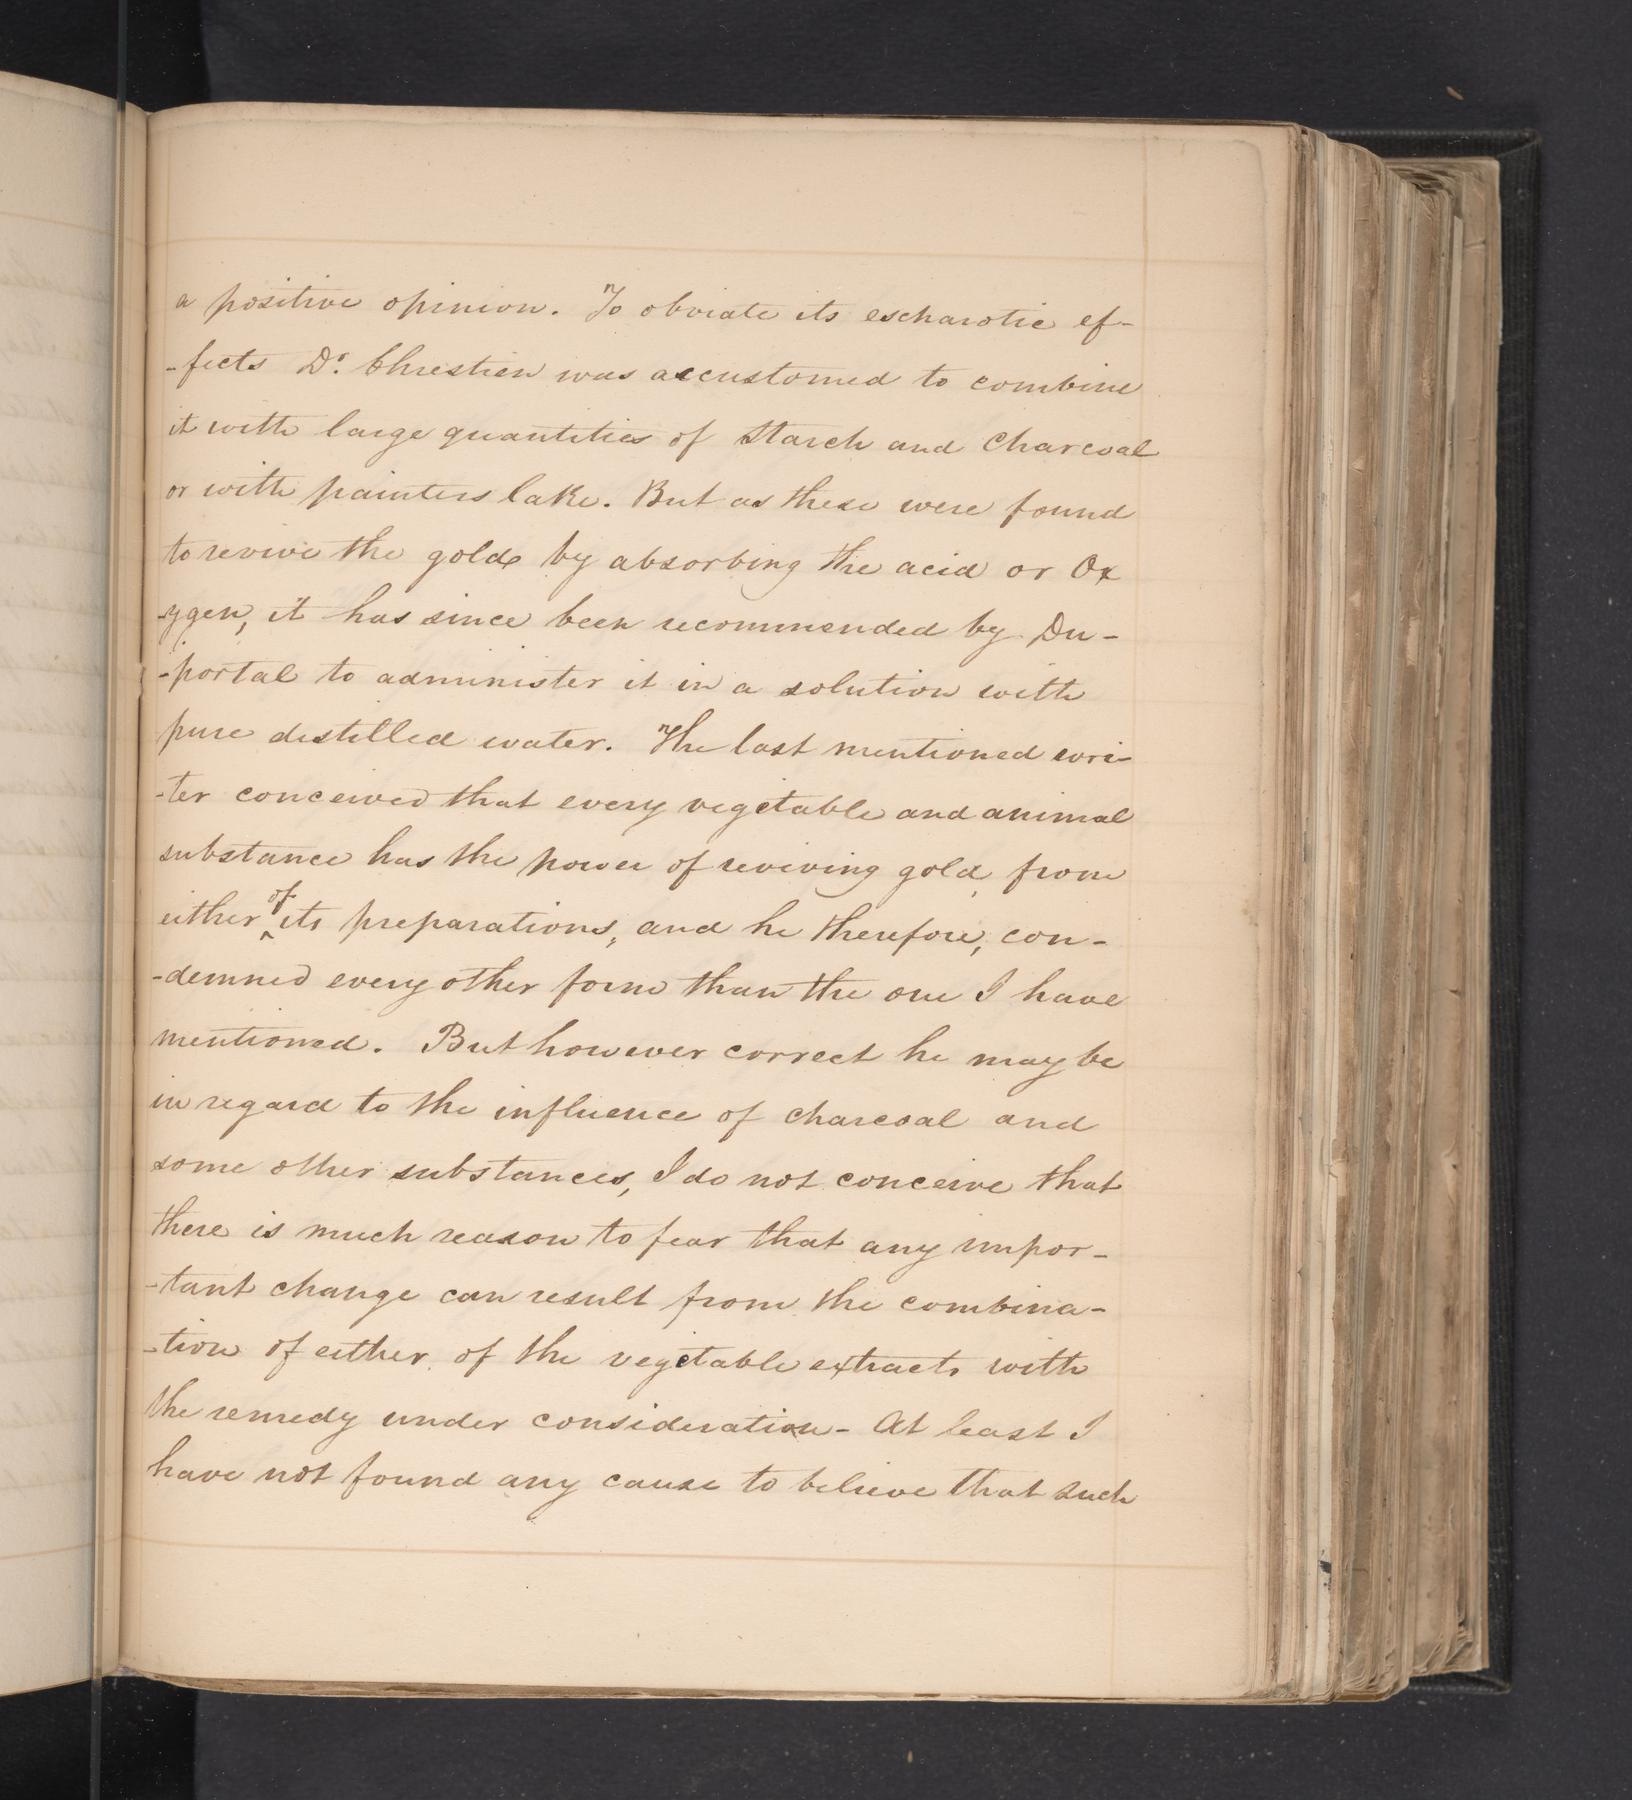 a positive opinion. To obviate its escharotic ef-
-fects Dr. Chrestien was accustomed to combine
it with large quantities of Starch and Charcoal
or with painters lake. But as these were found
to revive the gold by absorbing the acid or Ox
-ygen, it has since been recommended by Du-
-portal to administer it in a solution with
pure destilled water. The last mentioned wri-
-ter conceived that every vegetable and animal
substance has the power of reviving gold from
either of its preparations, and he therefore, con-
-demned every other form than the one I have
mentioned. But however correct he may be
in regard to the influence of charcoal and
some other substances, I do not conceive that
there is much reason to fear that any impor-
-tant change can result from the combina-
-tion of either of the vegetable extracts with
the remedy under consideration - At least I
have not found any cause to believe that such